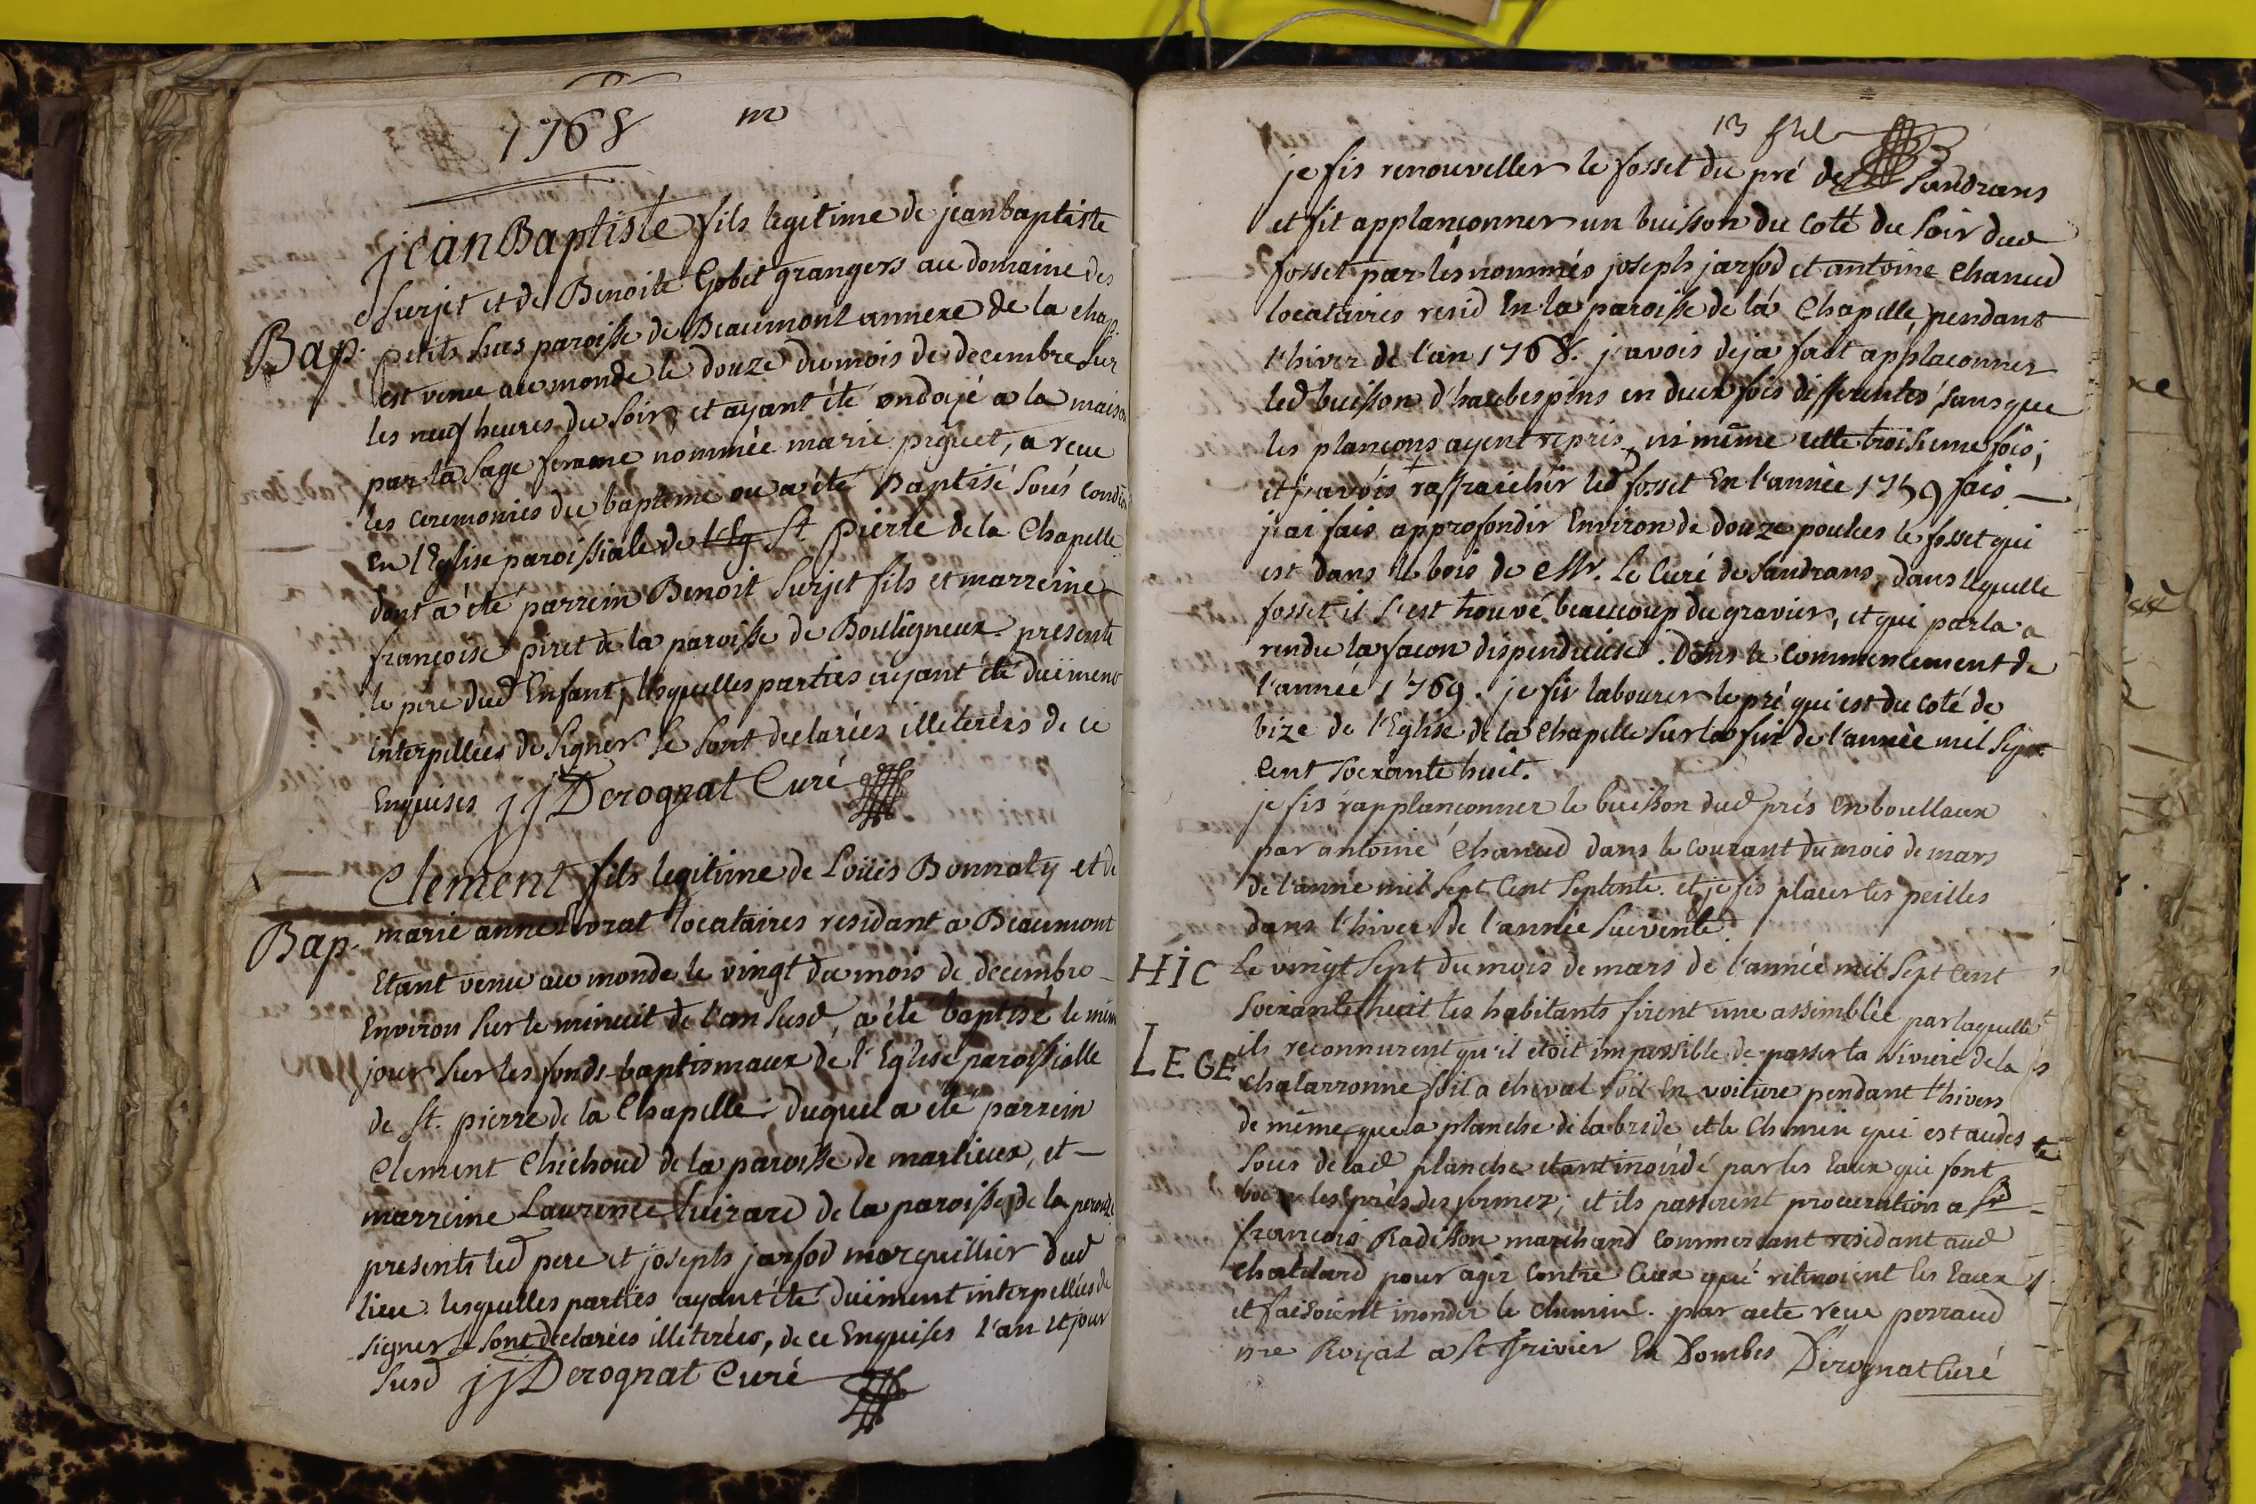 1768
jean Baptiste fils legitime de jeanbaptiste
Surjet et de Benoite Gobet grangers au domaine des
Bap. petits Sues paroisse de Beaumont annexe de la chap.
est venu au monde le douze du mois de decembre Sur
les neuf heures du Soir, et ayant été ondoyé a la maison
par la Sage femme nommée marie piguet, a reçu
les ceremonies du bapteme ou a été Baptisé Sous condion
en l'Eglise paroissiale de l'Eg St pierre de la Chapelle
dont a été parrein Benoit Surjet fils et marreine
françoise piret de la paroisse de Bouligneux. presente
le pere dud Enfant, lesquelles parties ayant été duëment
interpellées de Signer Se sont declarées illeterées de ce
Enquises jj Derognat Curé
Clement fils legitime de Loüis Bonnaty et de
Bap. marie anne vorat locataires residant a Beaumont
Etant venu au monde le vingt du mois de decembre
Environ Sur le minuit de l'an Susd, a été baptisé le mem
jour Sur les fonds baptismaux de l'Eglise paroissialle
de St. pierre de la Chapelle. duquel a été parrein
Clement Chichoud de la paroisse de marlieux, et
marreine Laurence Luirard de la paroisse de la perouze
presents led pere et joseph jarfod marguillier dud
lieu. lesquelles parties ayant été duëment interpellées de
signer se sont declarées illeterées, de ce Enquises l'an et jour
Susd jj Derognat Curé
13
je fis renouveller le fosset du pré de Sandrans
et fit applançonner un buisson du coté du Soir dud
fosset par les nommés joseph jarfod et antoine Chanud
locataires resid En la paroisse de la Chapelle, pendant
l'hiver de l'an 1768. j'avois deja fait applaconner
led buisson d'haubespins en deux fois differentes Sans que
les plançons ayent repris, ni même cette troisieme fois;
et j'avois raffraichir led fosset En l'année 1759 fais
j'ai fais approfondir Environ de douze poulces le fosset qui
est dans le bois de Mr. Le Curé de Sandrans, dans lequelle
fosset il S'est trouvé beaucoup du gravier, et qui par la a
rendu la façon dispendieuse. Dans le commencement de
l'année 1769. je fis labourer le pré qui est du coté de
bize de l'Eglise de la Chapelle Sur la fin de l'année mil Sept
Cent Soixante huit.
je fis rapplançonner le buisson dud prés en boullaux
par antoine Chanud dans le courant du mois de mars
de l'année mil Sept Cent Septente. et je fis placer les peilles
dans l'hiver de l'année Suivente
HIC Le vingt Sept du mois de mars de l'année mil Sept Cent
Soixante huit les habitants firent une assemblée par laquelle
LEGE ils reconnurent qu'il etoit impossible de passer la riviere de la
Chalarronne soit a cheval soit En voiture pendant l'hivers
de même que la planche de la bride et le Chemin qui est audes
Sous de lad planche etant inondé par les Eaux qui font
les prés des fermez; et ils passerent procuration a Sr
françois Radisson marchand Commercant residant aud
Chatelard pour agir Contre Ceux qui retenoient les Eaux
et faisoient inonder le chemin. par acte reçu perraud
nre Royal a St Trivier En Dombes Derognat Curé